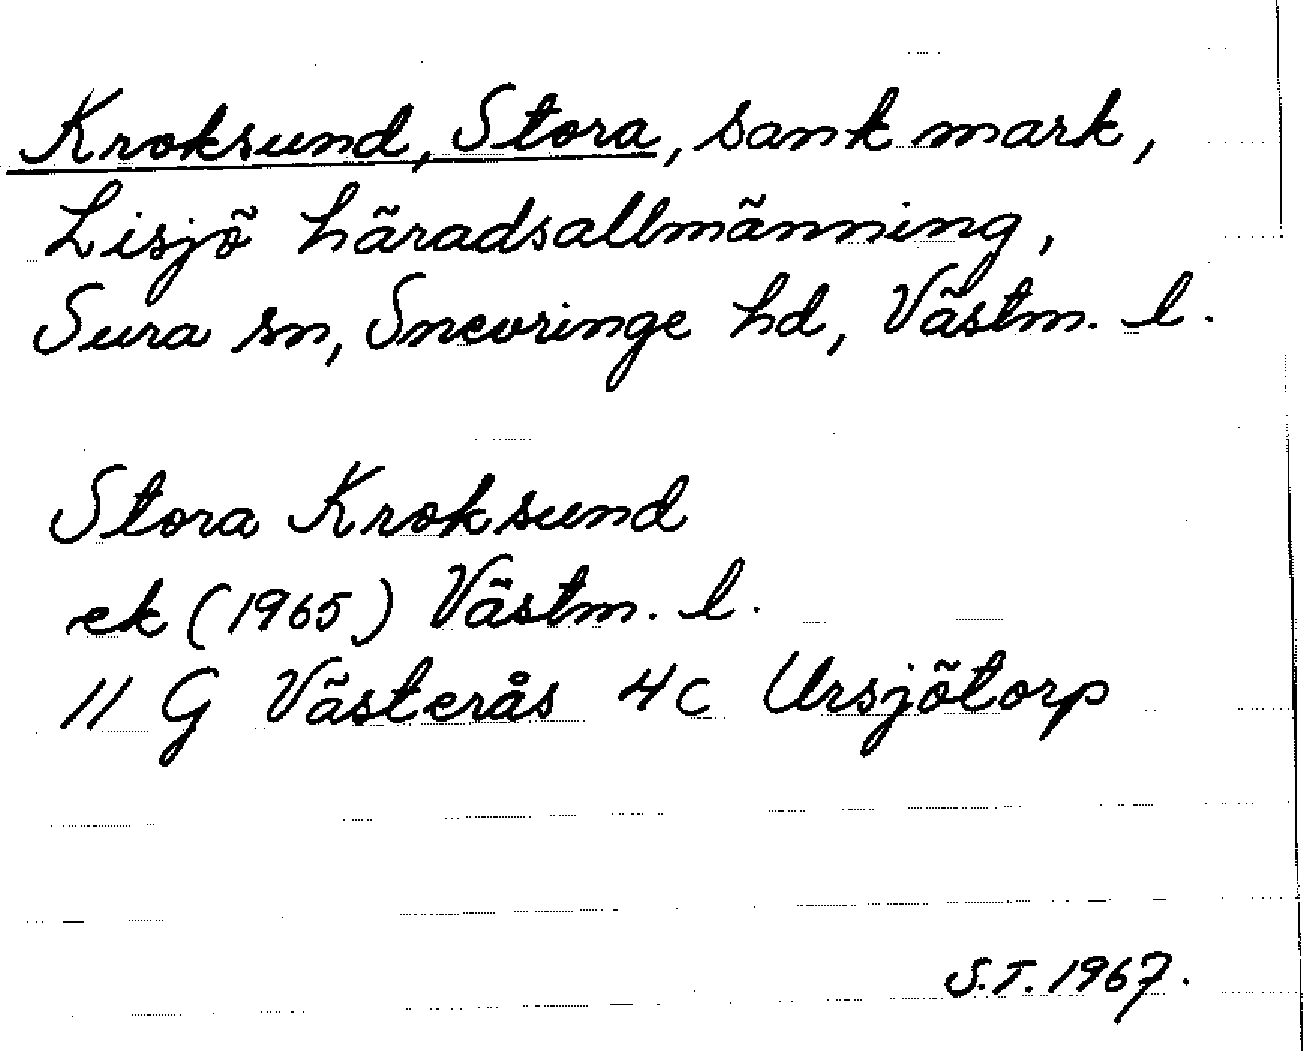 Kroksund, Stora, sank mark,
Lisjö häradsallmänning,
Sura sn, Snevringe hd, Västm. l.
Stora Kroksund
ek (1965) Västm. l.
11 G Västerås 4c Ursjötorp
S.T. 1967.